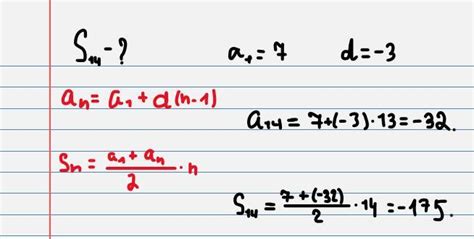 S₁₄ - ? a₁ = 7 d = -3
aₙ = a₁ + d(n-1)
a₁₄ = 7+(-3)·13 = -32.
Sₙ = (a₁ + aₙ)/2 · n
S₁₄ = (7+(-32))/2 · 14 = -175.